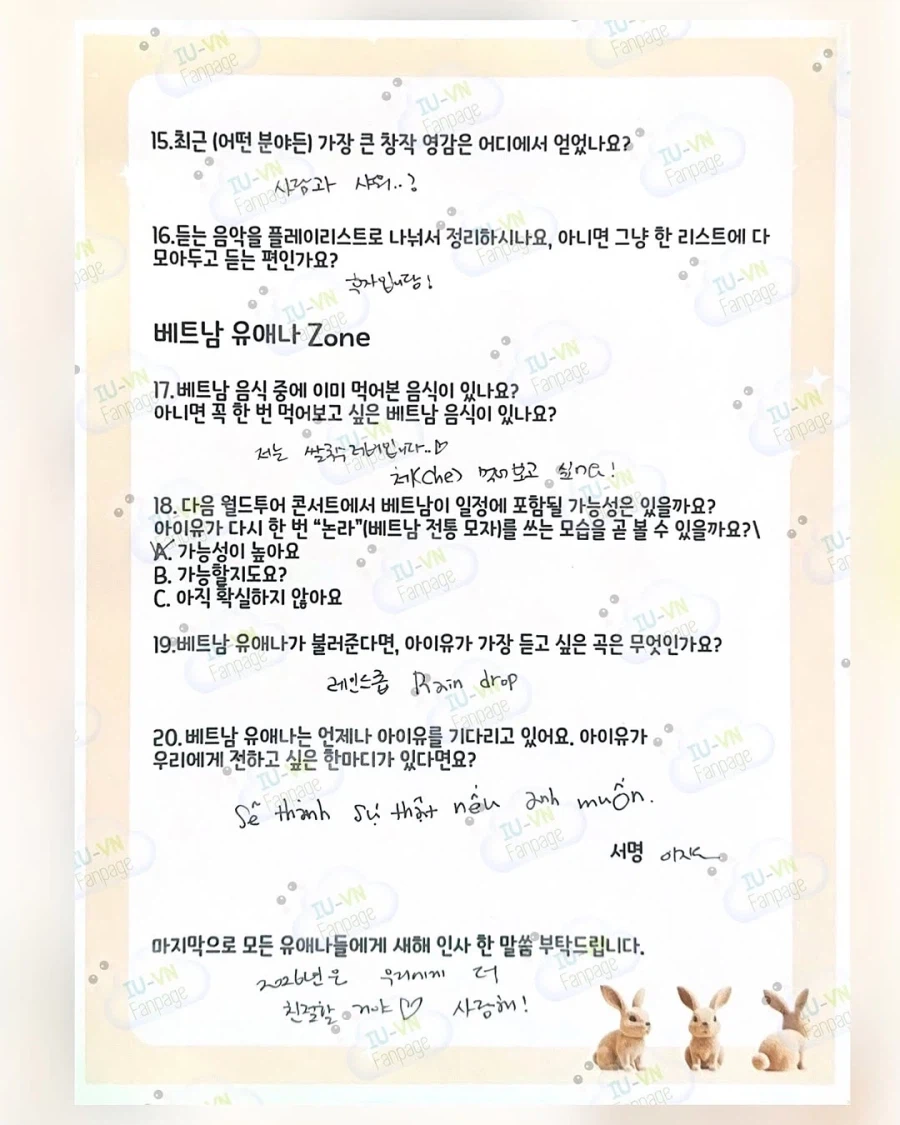 15.최근 (어떤 분야든) 가장 큰 창작 영감은 어디에서 얻었나요?
사람과 샤워..?
16.듣는 음악을 플레이리스트로 나눠서 정리하시나요, 아니면 그냥 한 리스트에 다
모아두고 듣는 편인가요?
후자입니당!
베트남 유애나 Zone
17.베트남 음식 중에 이미 먹어본 음식이 있나요?
아니면 꼭 한 번 먹어보고 싶은 베트남 음식이 있나요?
저는 쌀국수 러버입니다..♡
체(Che) 먹어보고 싶어요!
18. 다음 월드투어 콘서트에서 베트남이 일정에 포함될 가능성은 있을까요?
아이유가 다시 한 번 “논라”(베트남 전통 모자)를 쓰는 모습을 곧 볼 수 있을까요?\
\A. 가능성이 높아요
B. 가능할지도요?
C. 아직 확실하지 않아요
19.베트남 유애나가 불러준다면, 아이유가 가장 듣고 싶은 곡은 무엇인가요?
레인드롭 Rain drop
20.베트남 유애나는 언제나 아이유를 기다리고 있어요. 아이유가
우리에게 전하고 싶은 한마디가 있다면요?
Sẽ thành sự thật nếu anh muốn.
서명
마지막으로 모든 유애나들에게 새해 인사 한 말씀 부탁드립니다.
2026년은 우리에게 더
친절할 거야♡ 사랑해!
IU-VN
Fanpage